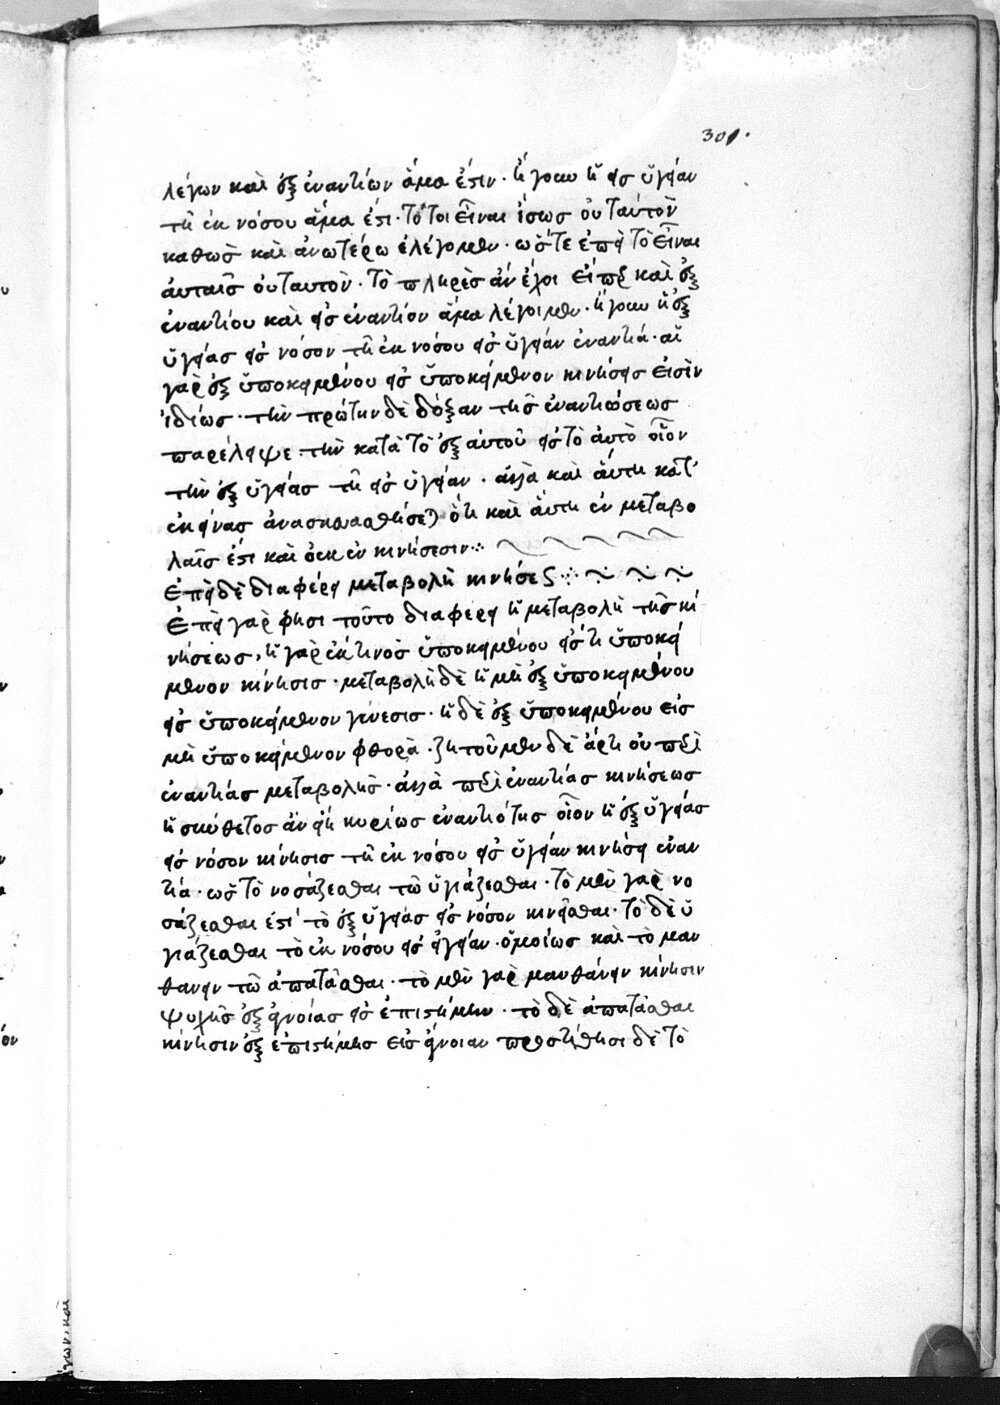 301.
λέγων καὶ ἐξ ἐναντίων ἅμα ἐστιν. ἤγουν ἡ εἰς ὑγείαν
τῇ ἐκ νόσου ἅμα ἐστι. τό τοι εἶναι ἴσως οὐ ταὐτὸν
καθὼς καὶ ἀνωτέρω ἐλέγομεν. ὥστε ἐπεὶ τὸ εἶναι
αὐταῖς οὐ ταυτὸν. τὸ πλῆρὲς ἀν ἔχοι εἴπερ καὶ ἐξ
ἐναντίου καὶ εἰς ἐναντίον ἅμα λέγοιμεν. ἤγουν ἡ ἐξ
ὑγείας εἰς νόσον τῇ ἐκ νόσου εἰς ὑγείαν ἐναντία. αἱ
γὰρ ἐξ ὑποκειμένου εἰς ὑποκείμενον κινήσεις εἰσὶν
ἰδίως. τὴν πρώτην δὲ δόξαν τῆς ἐναντιώσεως
παρέλειψε. τὴν κατὰ τὸ ἐξ αὐτοῦ εἰς τὸ ἀυτὸ οἷον
τὴν ἐξ ὑγείας τῇ εἰς ὑγείαν. ἀλλὰ καὶ αὕτη κατ'
ἐκείνας ἀνασκευασθήσεται ὅτι καὶ αὕτη ἐν μεταβο
λαῖς ἐστι καὶ οὐκ ἐν κινήσεσιν
Ἐπεὶ δὲ διαφέρει μεταβολὴ κινήσεως
Ἐπεὶ γάρ φησι τοῦτο διαφέρει ἡ μεταβολὴ τῆς κι
νήσεως, ἡ γὰρ ἐκ τινὸς ὑποκειμένου εἴς τι ὑποκεί
μενον κίνησις. μεταβολὴ δὲ ἡ μὴ ἐξ ὑποκειμένου
εἰς ὑποκείμενον γένεσις. ἡ δὲ ἐξ ὑποκειμένου εἰς
μὴ ὑποκείμενον φθορὰ. ζητοῦμεν δὲ ἄρτι οὐ περὶ
ἐναντίας μεταβολῆς. ἀλλὰ περὶ ἐναντίας κινήσεως
ἡ σύνθετος ἂν εἴη κυρίως ἐναντιότης οἷον ἡ ἐξ ὑγείας
εἰς νόσον κίνησις τῇ ἐκ νόσου εἰς ὑγείαν κινήσει ἐναν
τία. ὡς τὸ νοσάζεσθαι τῶ ὑγιάζεσθαι. τὸ μὲν γὰρ νο
σάζεσθαι ἐστὶ τὸ ἐξ ὑγείας εἰς νόσον κινεῖσθαι. τὸ δὲ ὑ
γιάζεσθαι τὸ ἐκ νόσου εἰς ὑγείαν. ὁμοίως καὶ τὸ μαν
θανειν τῶ ἀπατᾶσθαι. τὸ μὲν γὰρ μανθάνειν κίνησιν
ψυχῆς ἐξ ἀγνοίας εἰς ἐπιστήμην. τὸ δὲ ἀπατᾶσθαι
κίνησιν ἐξ ἐπιστήμης εἰς ἄγνοιαν προστίθησι δὲ τὸ